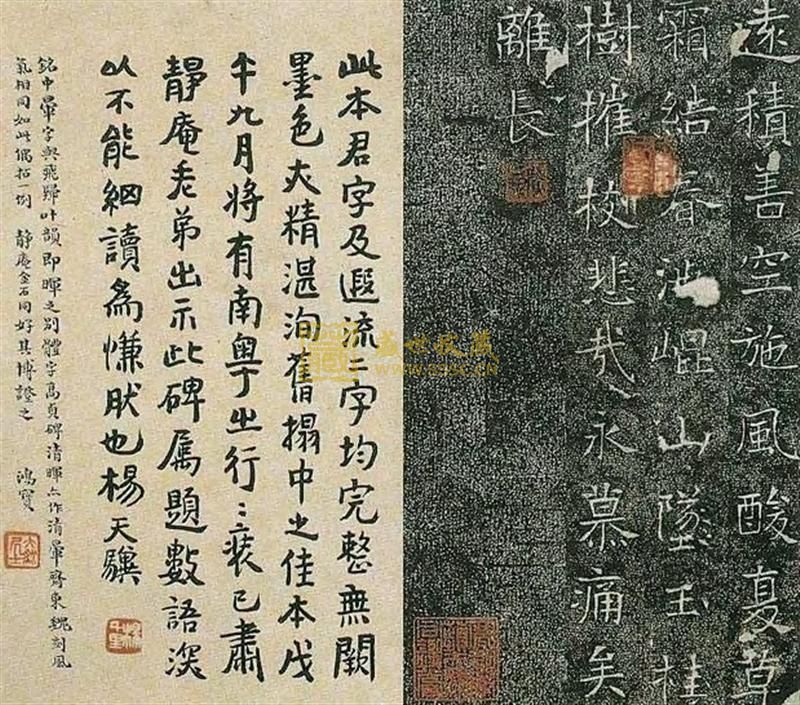 遠積善空施風酸夏草
霜結春沾崐山墜玉桂
樹摧枝悲哉永慕痛矣
離長
此本君字及遐流字均完整無闕
墨色亦精湛洵舊搨中之佳本戊
午九月將有南粵之行〻裝已肅
靜庵老弟出示此碑屬題數語深
以不能細讀為慊肰也楊天驥
銘中暈字與飛歸叶韻即暉之別體字高貞碑清暉亦作清暈齊東魏刻風
氣相同如此偶拈一例 靜庵金石同好其博證之 鴻寶
盛世收藏
www.sssc.cn